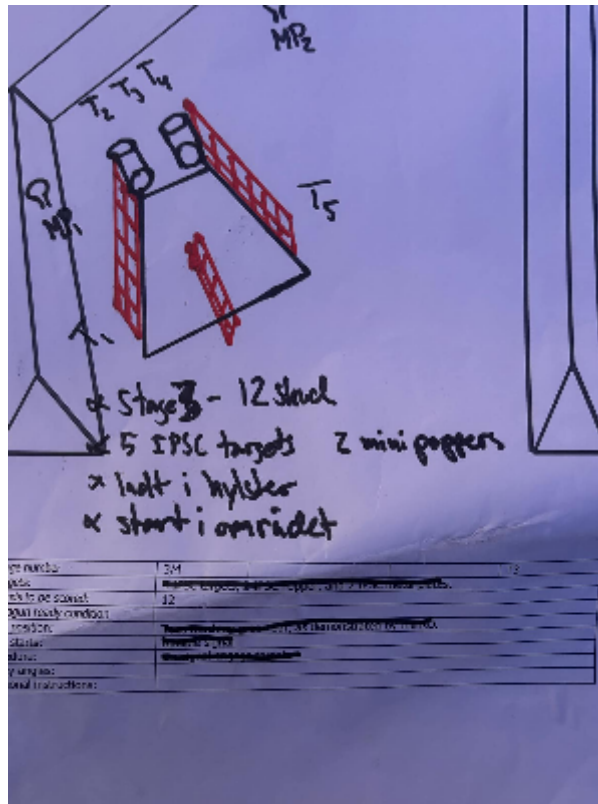 MP2
T2 T3 T4
T5
MP1
T1
* Stage 3 - 12 skud
* 5 IPSC targets 2 mini poppers
* ladt i hylster
* start i området
number 3/4
to be scored: 12
ready condition
position:
starts:
angles:
instructions: